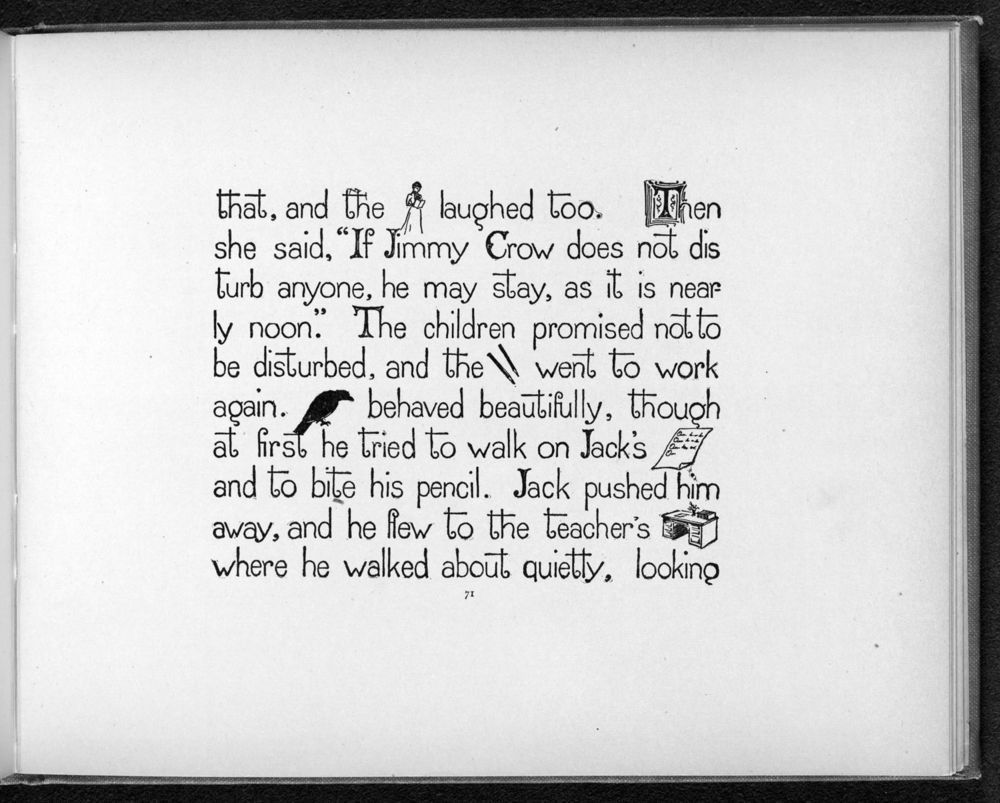 that, and the laughed too. Then
she said, “If Jimmy Crow does not dis
turb anyone, he may stay, as it is near
ly noon.” The children promised not to
be disturbed, and the went to work
again. behaved beautifully, though
at first he tried to walk on Jack's
and to bite his pencil. Jack pushed him
away, and he flew to the teacher's
where he walked about quietly, looking
71